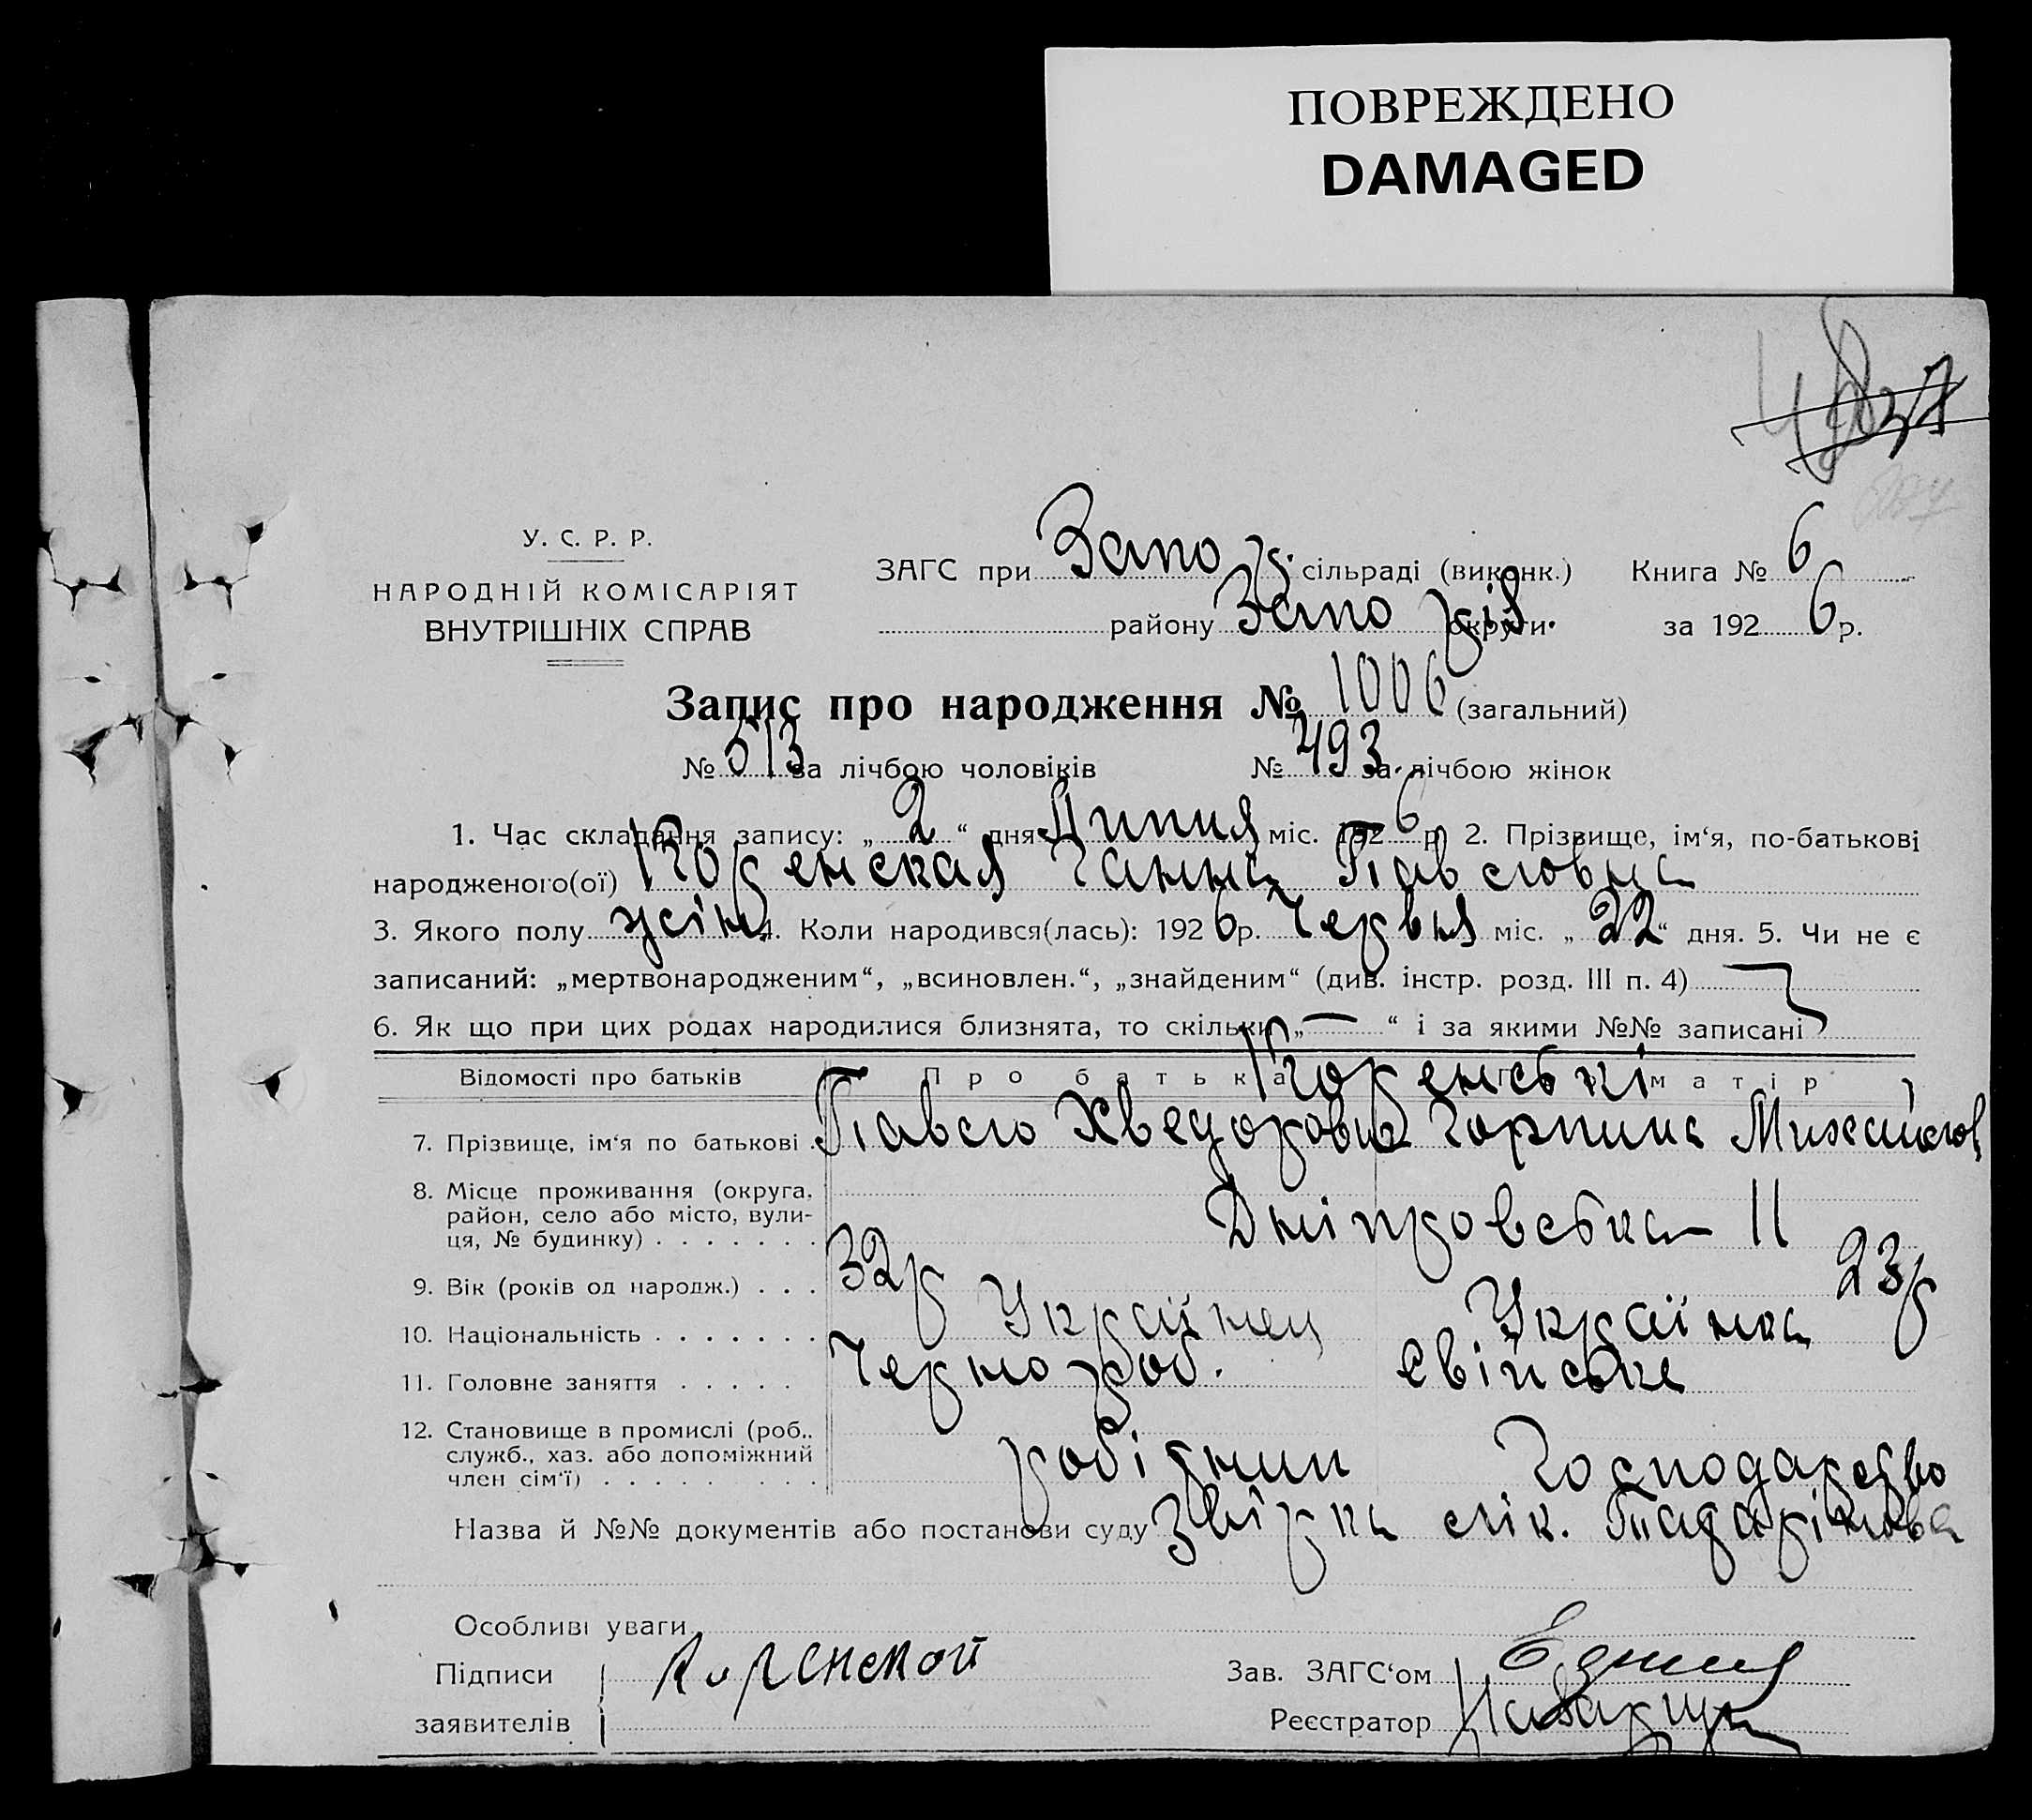 ПОВРЕЖДЕНО
DAMAGED
У. С. Р. Р.
НАРОДНІЙ КОМІСАРІЯТ
ВНУТРІШНІХ СПРАВ
ЗАГС при Запо р. сільраді (виконк.) Книга № 6
району Запо різ. округи за 1926 р.
Запис про народження № 1006 (загальний)
№ 513 за лічбою чоловіків № 493 за лічбою жінок
1. Час складання запису: „ 2 “ дня Липня міс. 1926 р. 2. Прізвище, ім‘я, по-батькові
народженого(ої) Коренская Ганна Павловна
3. Якого полу жін. 4. Коли народився(лась): 1926 р. Червня міс. „ 22 “ дня. 5. Чи не є
записаний: „мертвонародженим“, „всиновлен.“, „знайденим“ (див. інстр. розд. III п. 4)
6. Як що при цих родах народилися близнята, то скільки „ — “ і за якими №№ записані
Відомості про батьків Про батька матір
Коренські
7. Прізвище, ім‘я по батькові Павло Хведорович Горпина Михайлов
8. Місце проживання (округа,
район, село або місто, вули-
ця, № будинку) Дніпровська 11
9. Вік (років од народж.) 32 р 23 р
10. Національність Українец Українка
11. Головне заняття Чернороб. свійське
12. Становище в промислі (роб.,
служб., хаз. або допоміжний
член сім‘ї) робітник господарство
Назва й №№ документів або постанови суду лік.
Особливі уваги
Підписи Коренской Зав. ЗАГС‘ом
заявителів Реєстратор